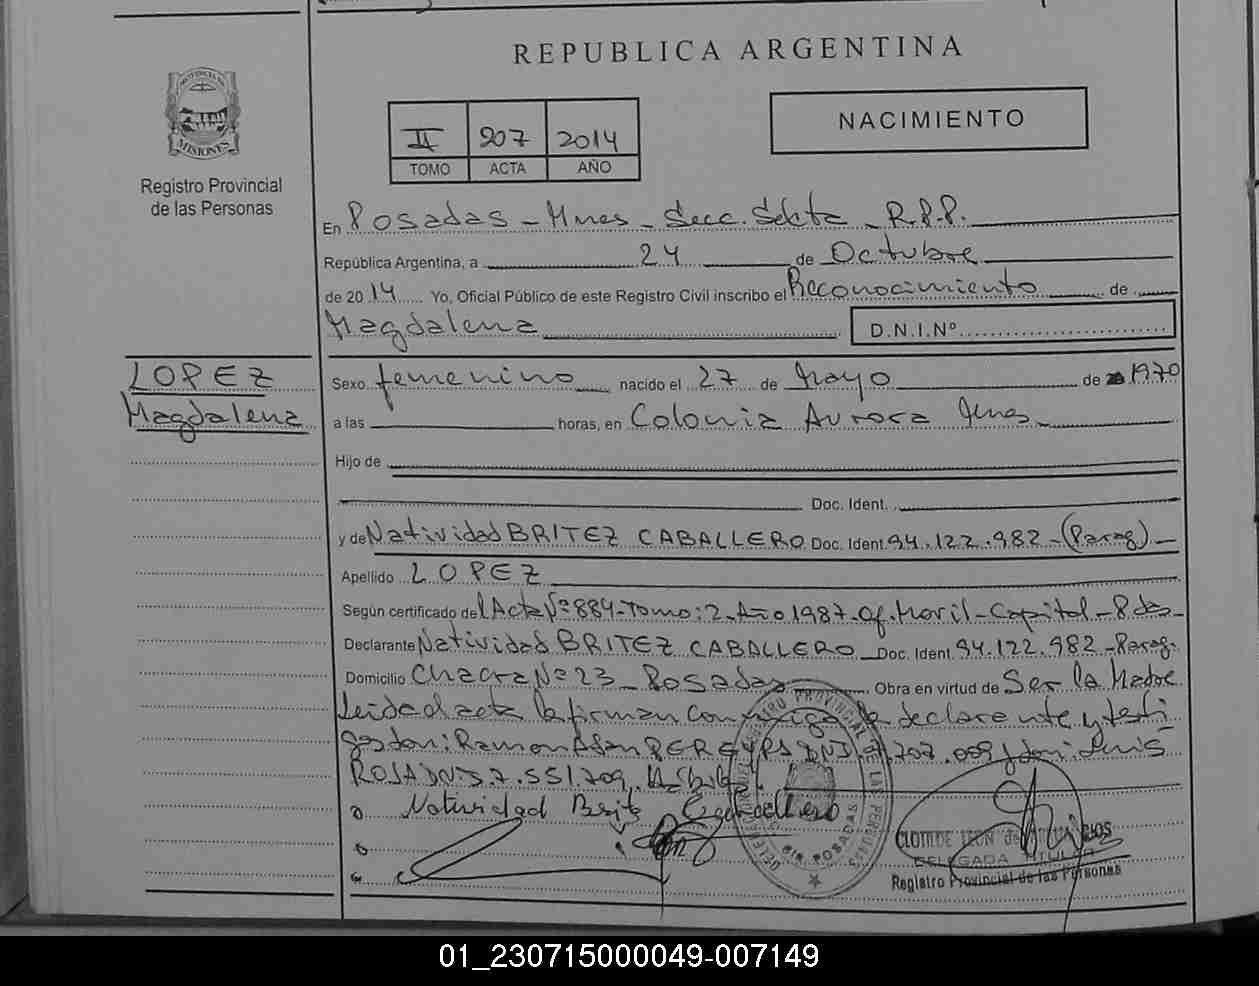 REPUBLICA ARGENTINA
PROVINCIA DE
MISIONES
Registro Provincial
de las Personas
II 207 2014
TOMO ACTA AÑO
NACIMIENTO
En Posadas - Mnes - Secc. Sexta R.P.P.
República Argentina, a 24 de Octubre
de 2014 Yo, Oficial Público de este Registro Civil inscribo el Reconocimiento de
Magdalena D.N.I.Nº
LOPEZ
Magdalena
Sexo femenino nacido el 27 de Mayo de 1970
a las horas, en Colonia Aurora Mnes
Hijo de
Doc. Ident.
y de Natividad BRITEZ CABALLERO Doc. Ident. 94.122.982 - (Parag) -
Apellido LOPEZ
Según certificado del Acta Nº 884 - Tomo: 2 - Año 1987 - Of. Movil - Capital - Pdas -
Declarante Natividad BRITEZ CABALLERO Doc. Ident. 94.122.982 - Parag.
Domicilio Chacra Nº 23 - Posadas Obra en virtud de Ser la Madre
Leida el acta la firman conmigo la declarante y testi
gos don: Ramon PEREYRA DNI 707.009 y don: Luis
ROSA DNI 7.551.709
Natividad Brite Caballero
CLOTILDE LEON de
DELEGADA TITULAR
Registro Provincial de las Personas
REGISTRO PROVINCIAL DE LAS PERSONAS
POSADAS
01_230715000049-007149